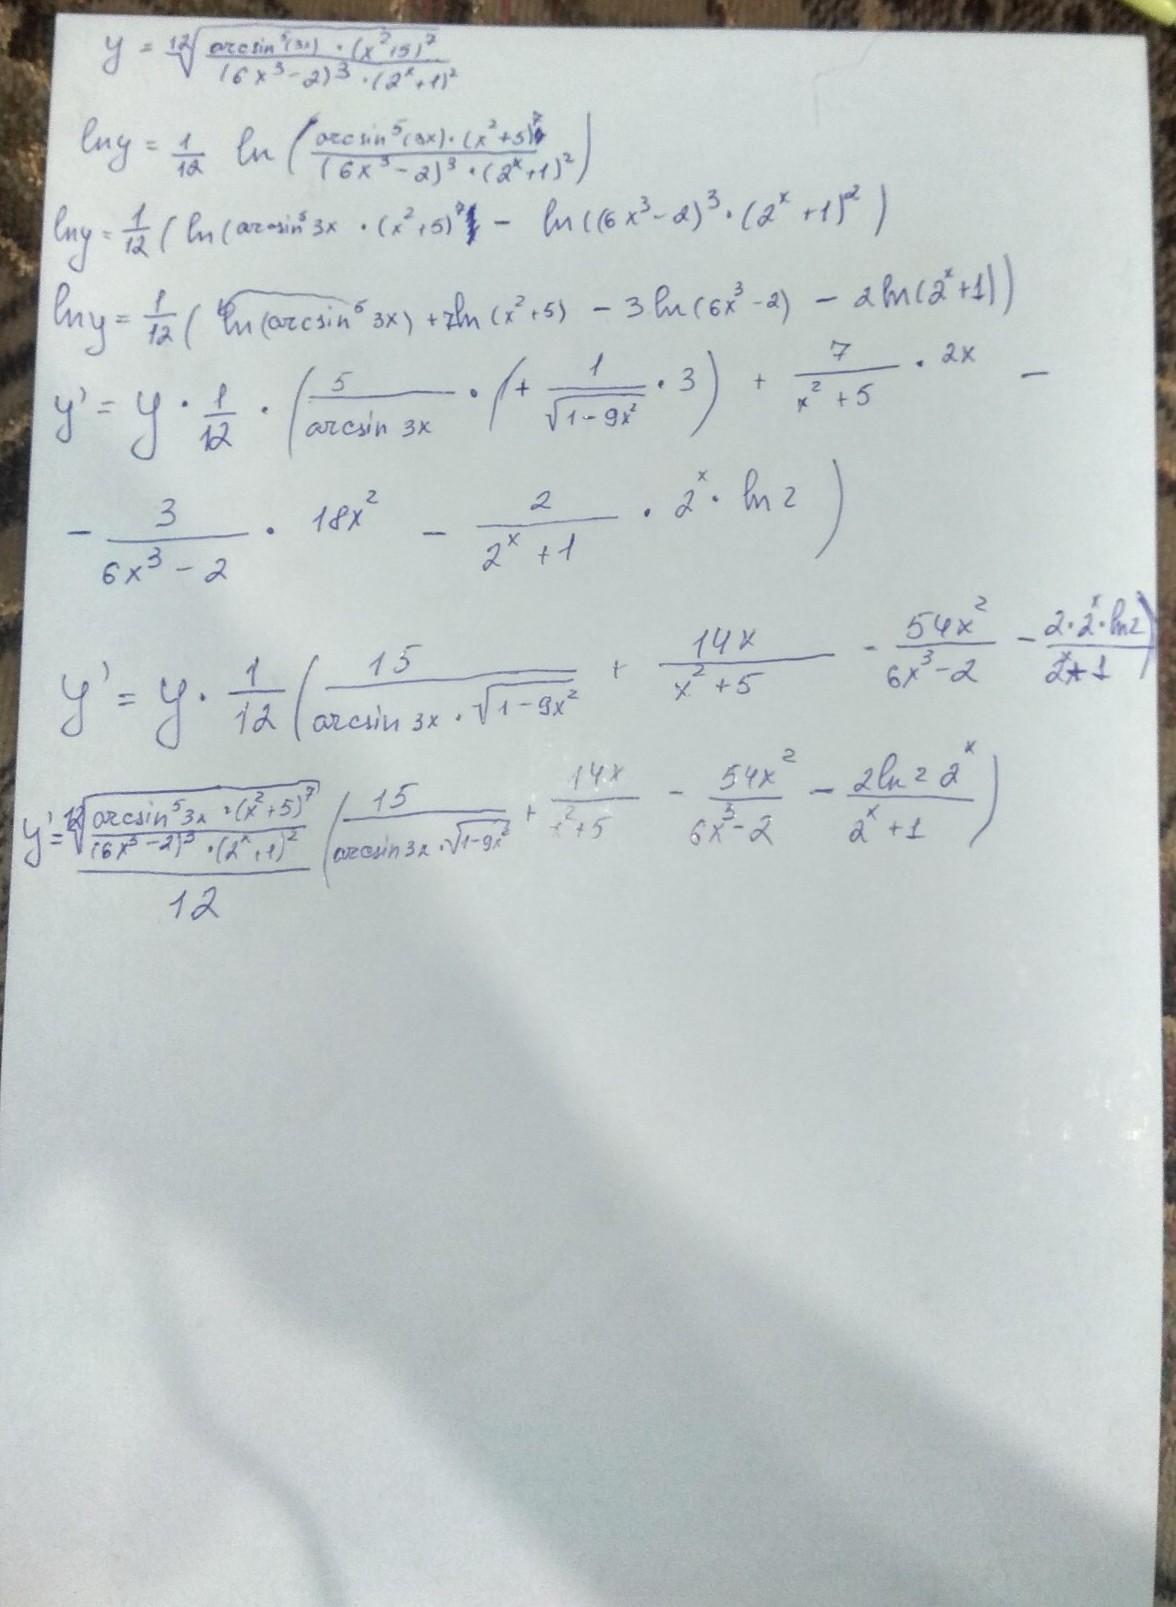 y = ¹²√(arcsin⁵(3x) · (x²+5)⁷ / (6x³-2)³ · (2ˣ+1)²)
lny = 1/12 ln (arcsin⁵(3x) · (x²+5)⁷ / (6x³-2)³ · (2ˣ+1)²)
lny = 1/12 (ln(arcsin⁵ 3x · (x²+5)⁷ - ln((6x³-2)³ · (2ˣ+1)²)
lny = 1/12 (ln(arcsin⁵ 3x) + 7ln(x²+5) - 3ln(6x³-2) - 2ln(2ˣ+1))
y' = y · 1/12 · (5/arcsin 3x · (+ 1/√(1-9x²) · 3) + 7/(x²+5) · 2x -
- 3/(6x³-2) · 18x² - 2/(2ˣ+1) · 2ˣ · ln2)
y' = y · 1/12 (15/(arcsin 3x · √(1-9x²)) + 14x/(x²+5) - 54x²/(6x³-2) - 2·2ˣ·ln2/(2ˣ+1))
y' = ¹²√(arcsin⁵3x · (x²+5)⁷ / (6x³-2)³ · (2ˣ+1)²)/12 (15/(arcsin3x · √(1-9x²)) + 14x/(x²+5) - 54x²/(6x³-2) - 2ln2 2ˣ/(2ˣ+1))